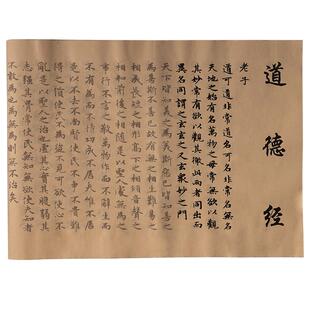 道德經
老子
道可道非常道名可名非常名無名
天地之始有名萬物之母常無欲以觀
其妙常有欲以觀其徼此兩者同出而
異名同謂之玄玄之又玄衆妙之門
天下皆知美之為美斯惡已皆知善之
為善斯不善已故有無之相生難易之
相成長短之相形高下之相傾音聲之
相和前後之相隨是以聖人處無為之
事行不言之教萬物作而不辭生而
不有為而不恃功成不居夫唯不居
是以不去不尚賢使民不爭不貴難
得之貨使民不為盜不見可欲使心不
亂是以聖人之治虛其心實其腹弱其
志強其骨常使民無知無欲使夫知者
不敢為也為無為則無不治矣